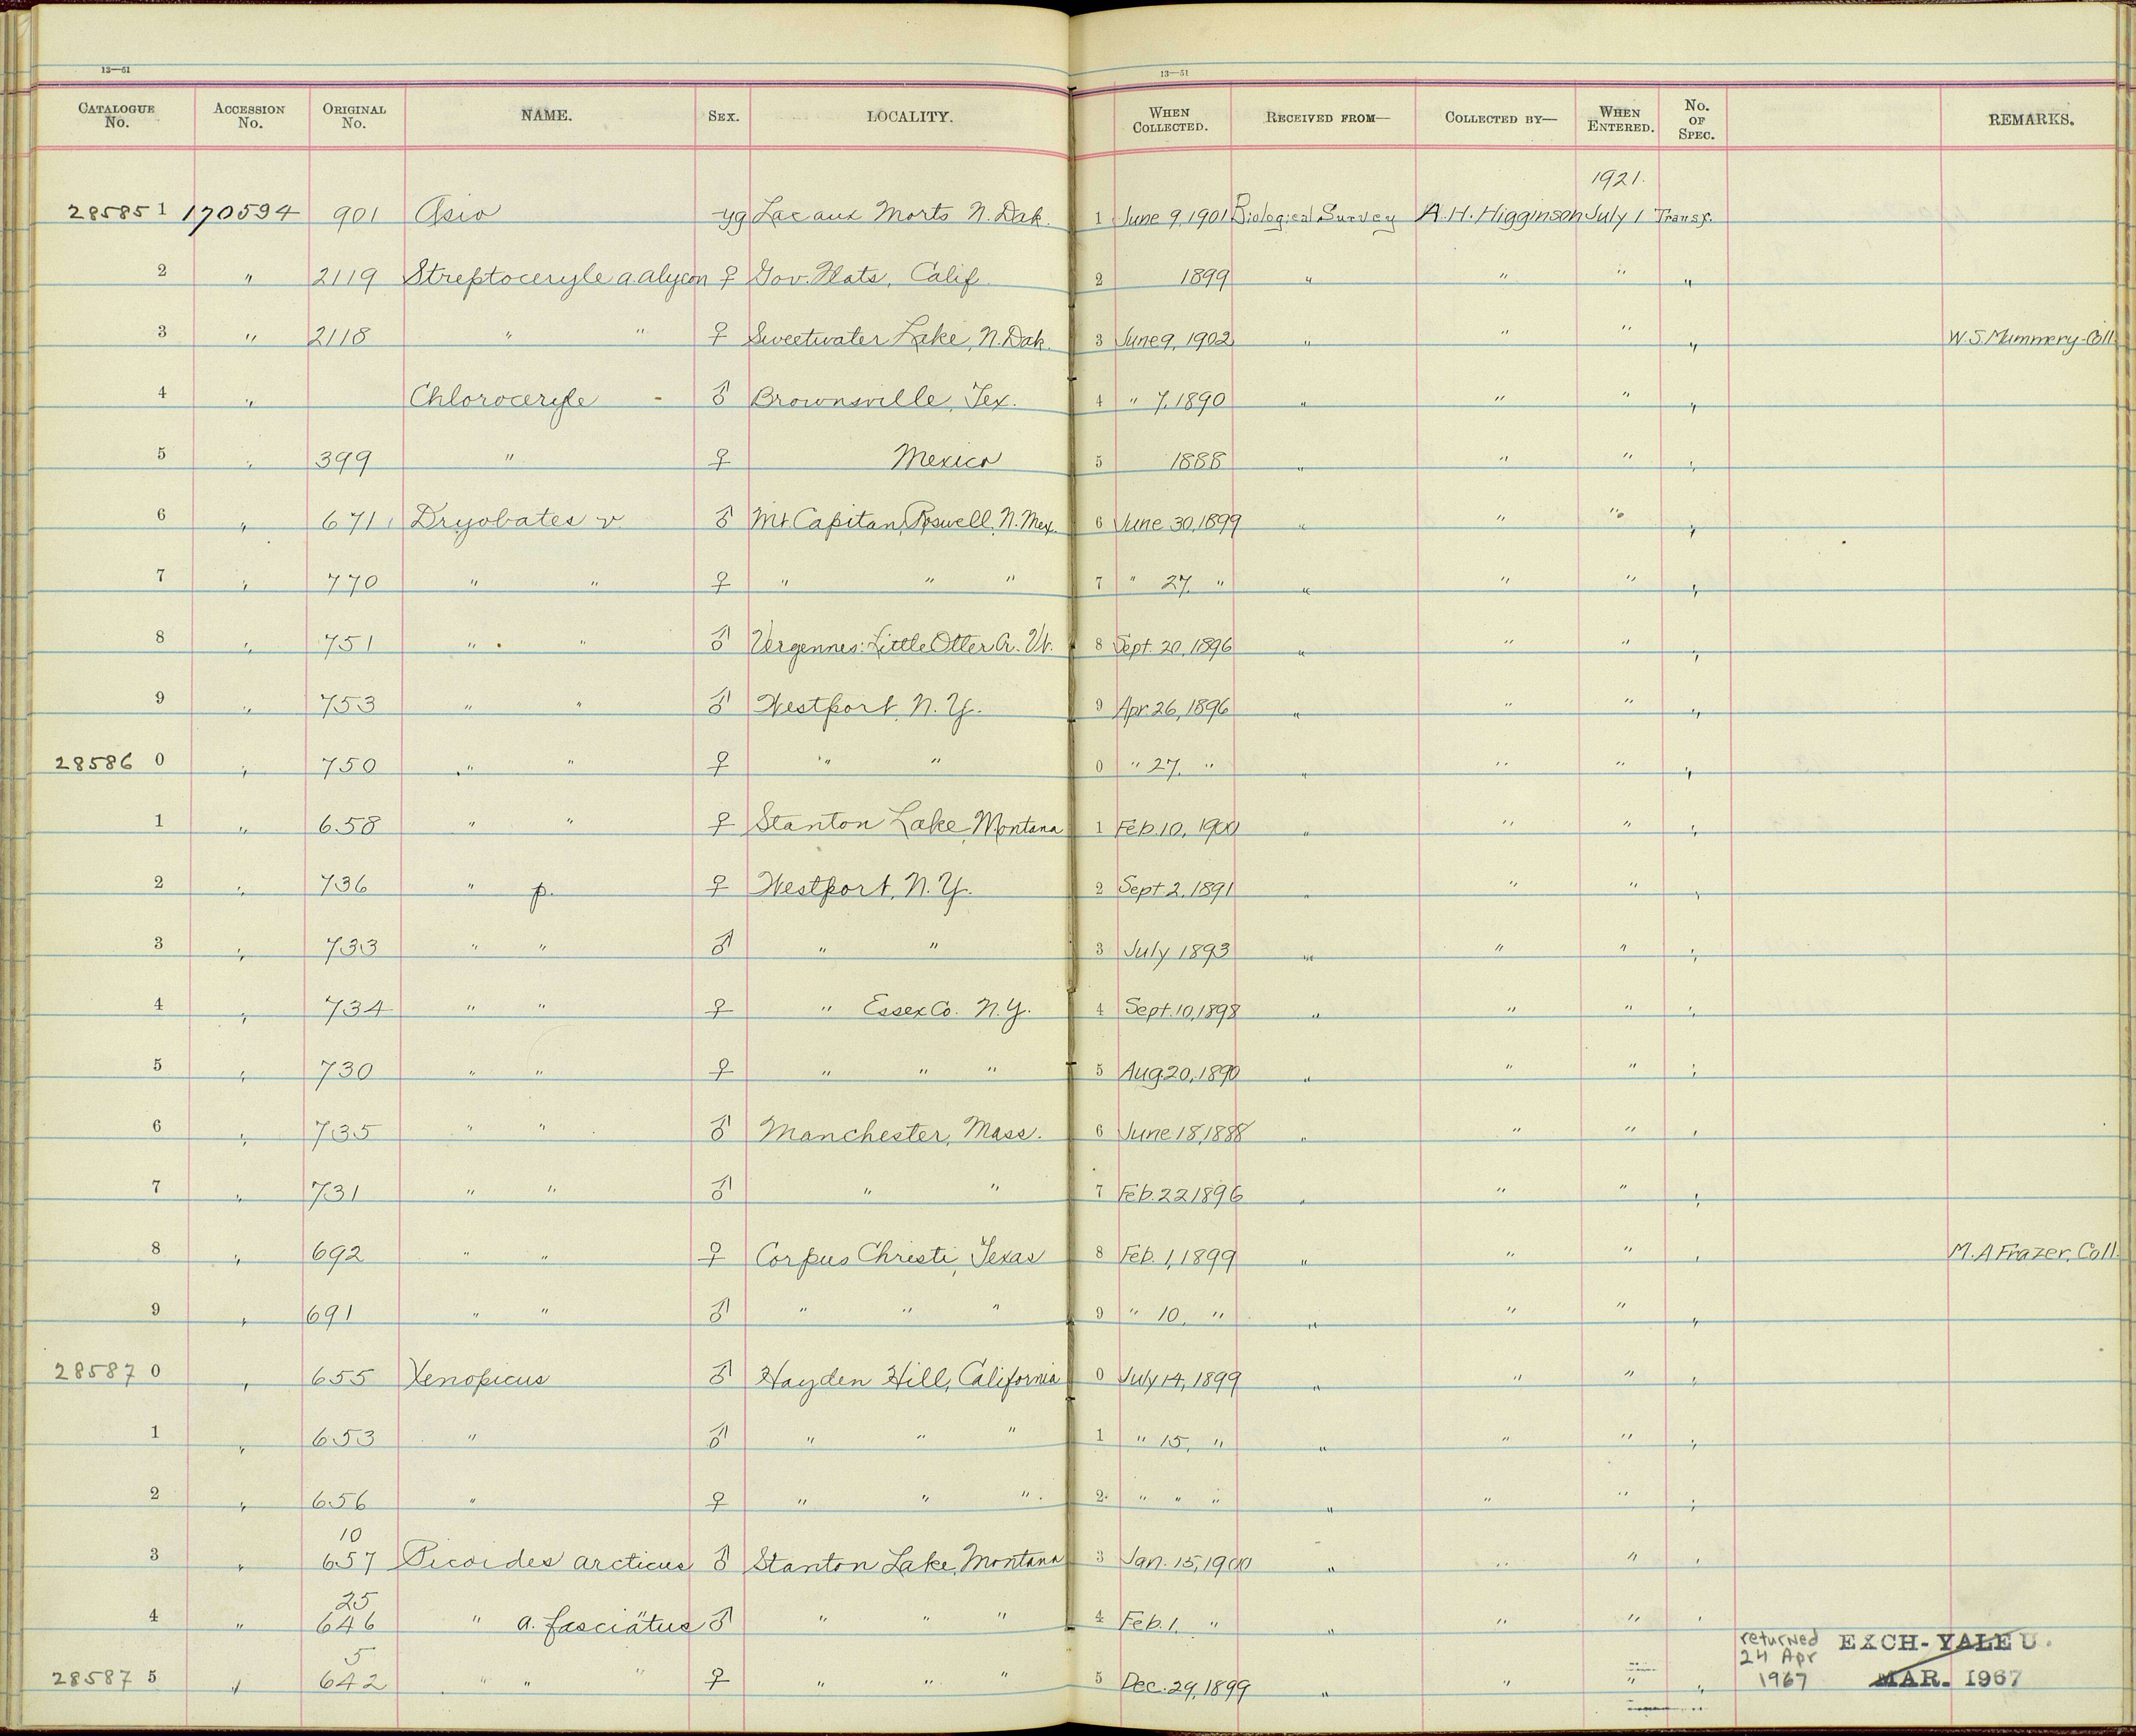 13—51 13—51
CATALOGUE No. ACCESSION No. ORIGINAL No. NAME. SEX. LOCALITY. WHEN COLLECTED. RECEIVED FROM— COLLECTED BY— WHEN ENTERED. No. OF SPEC. REMARKS.
1921.
28585 1 170594 901 Asio yg Lac aux Morts N. Dak. 1 June 9, 1901 Biological Survey A. H. Higginson July 1 Transf.
2 " 2119 Streptoceryle a. alycon ♀ Gov. Flats, Calif. 2 1899 " " " "
3 " 2118 " " ♀ Sweetwater Lake, N. Dak. 3 June 9, 1902 " " " " W. S. Mummery-Coll.
4 " Chloroceryle - ♂ Brownsville, Tex. 4 " 7, 1890 " " " "
5 " 399 " ♀ Mexico 5 1888 " " " "
6 " 671 Dryobates v. ♂ Mt Capitan, Roswell, N. Mex. 6 June 30, 1899 " " " "
7 " 770 " " ♀ " " " 7 " 27, " " " " "
8 " 751 " " ♂ Vergennes: Little Otter Cr. Vt. 8 Sept. 20, 1896 " " " "
9 " 753 " " ♂ Westport, N. Y. 9 Apr. 26, 1896 " " " "
28586 0 " 750 " " ♀ " " 0 " 27, " " " " "
1 " 658 " " ♀ Stanton Lake, Montana 1 Feb. 10, 1900 " " " "
2 " 736 " p. ♀ Westport, N. Y. 2 Sept 2, 1891 " " " "
3 " 733 " " ♂ " " 3 July 1893 " " " "
4 " 734 " " ♀ " Essex Co. N. Y. 4 Sept. 10, 1898 " " " "
5 " 730 " " ♀ " " " 5 Aug. 20, 1890 " " " "
6 " 735 " " ♂ Manchester, Mass. 6 June 18, 1888 " " " "
7 " 731 " " ♂ " " 7 Feb. 22 1896 " " " "
8 " 692 " " ♀ Corpus Christi, Texas 8 Feb. 1, 1899 " " " " M. A Frazer, Coll.
9 " 691 " " ♂ " " " 9 " 10, " " " " "
28587 0 " 655 Xenopicus ♂ Hayden Hill, California 0 July 14, 1899 " " " "
1 " 653 " ♂ " " " 1 " 15, " " " " "
2 " 656 " ♀ " " " 2 " " " " " " "
10
3 " 657 Picoides arcticus ♂ Stanton Lake, Montana 3 Jan. 15, 1900 " " " "
25
4 " 646 " a. fasciatus ♂ " " " 4 Feb. 1, " " " " "
returned EXCH-YALE U.
5 24 Apr
28587 5 " 642 " " " ♀ " " " 5 Dec. 29, 1899 " " " " 1967 MAR. 1967